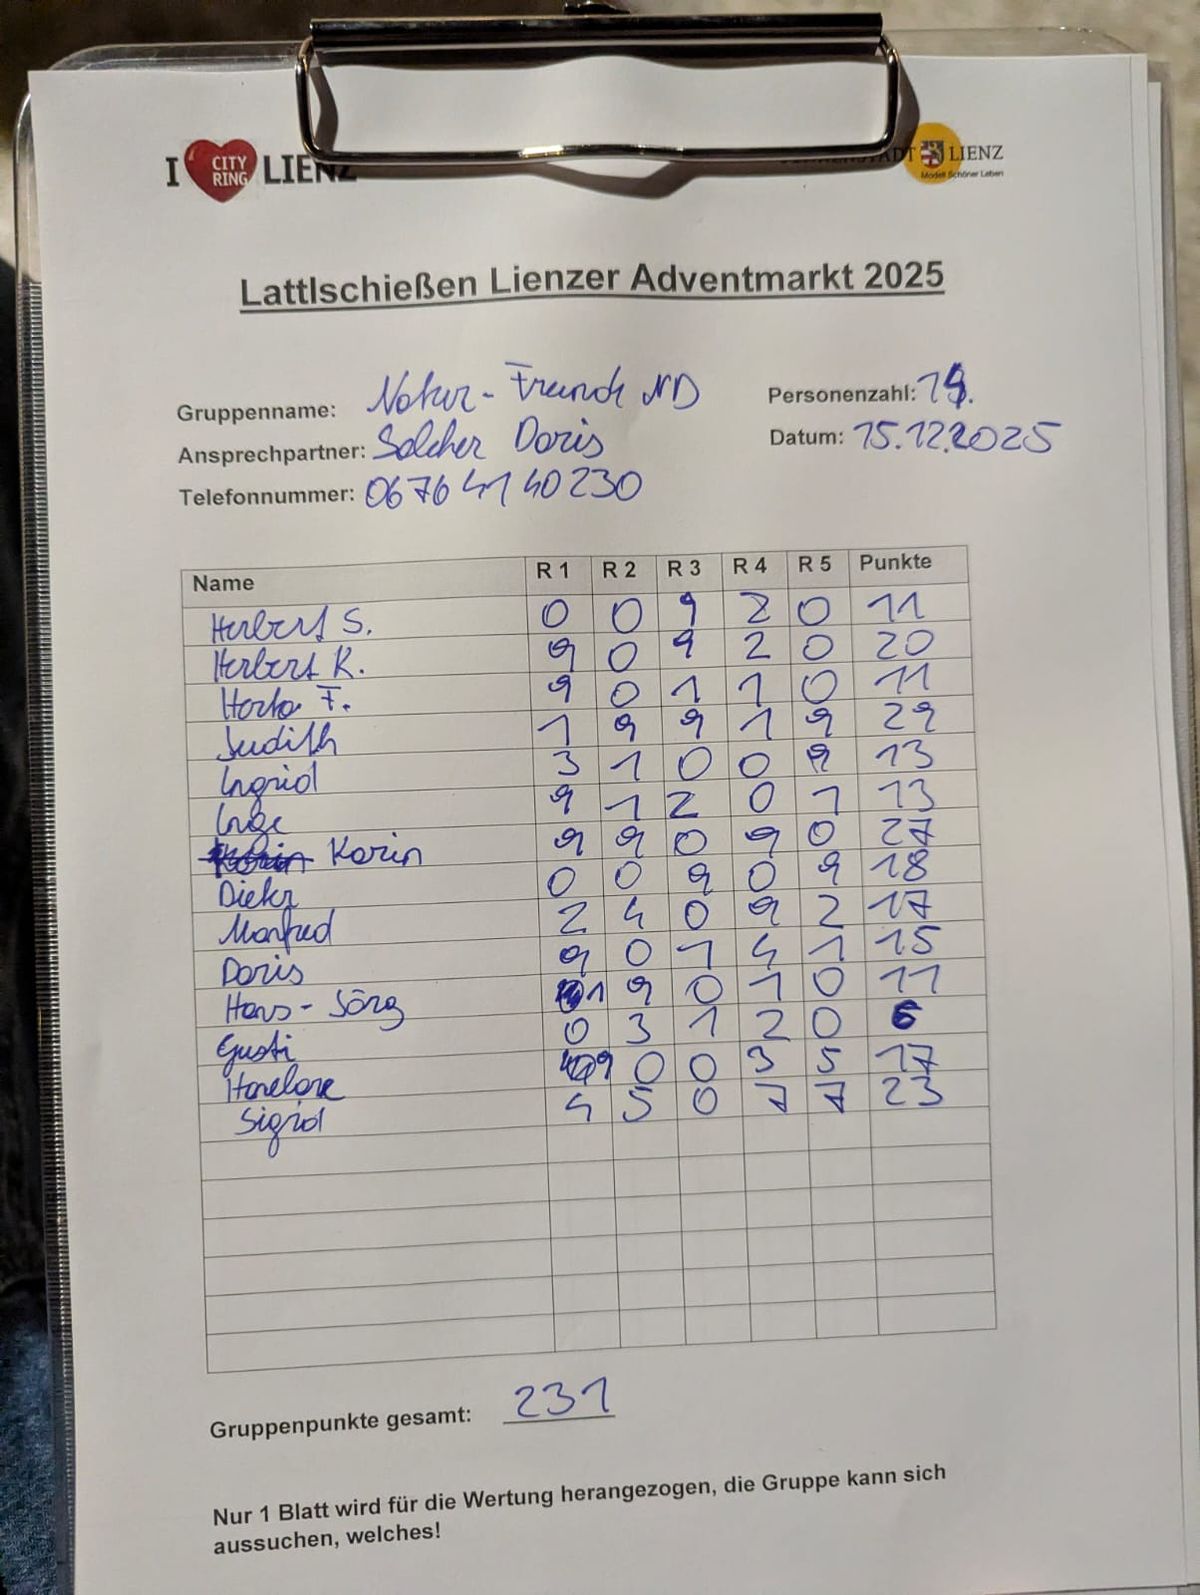 I CITY RING LIENZ
LIENZ
Modell Schöner Leben
Lattlschießen Lienzer Adventmarkt 2025
Gruppenname: Natur-Freunde ND Personenzahl: 14.
Ansprechpartner: Salcher Doris Datum: 15.12.2025
Telefonnummer: 0676 4140230
Name R 1 R 2 R 3 R 4 R 5 Punkte
Herbert S. 0 0 9 2 0 11
Herbert K. 9 0 9 2 0 20
Herta F. 9 0 1 1 0 11
Judith 1 9 9 1 9 29
Ingrid 3 1 0 0 9 13
Inge 9 1 2 0 1 13
Karin 9 9 0 9 0 27
Dieter 0 0 9 0 9 18
Manfred 2 4 0 9 2 17
Doris 9 0 1 4 1 15
Hans-Jörg 1 9 0 1 0 11
Gusti 0 3 1 2 0 6
Hanelore 9 0 0 3 5 17
Sigrid 4 5 0 7 7 23
Gruppenpunkte gesamt: 231
Nur 1 Blatt wird für die Wertung herangezogen, die Gruppe kann sich
aussuchen, welches!